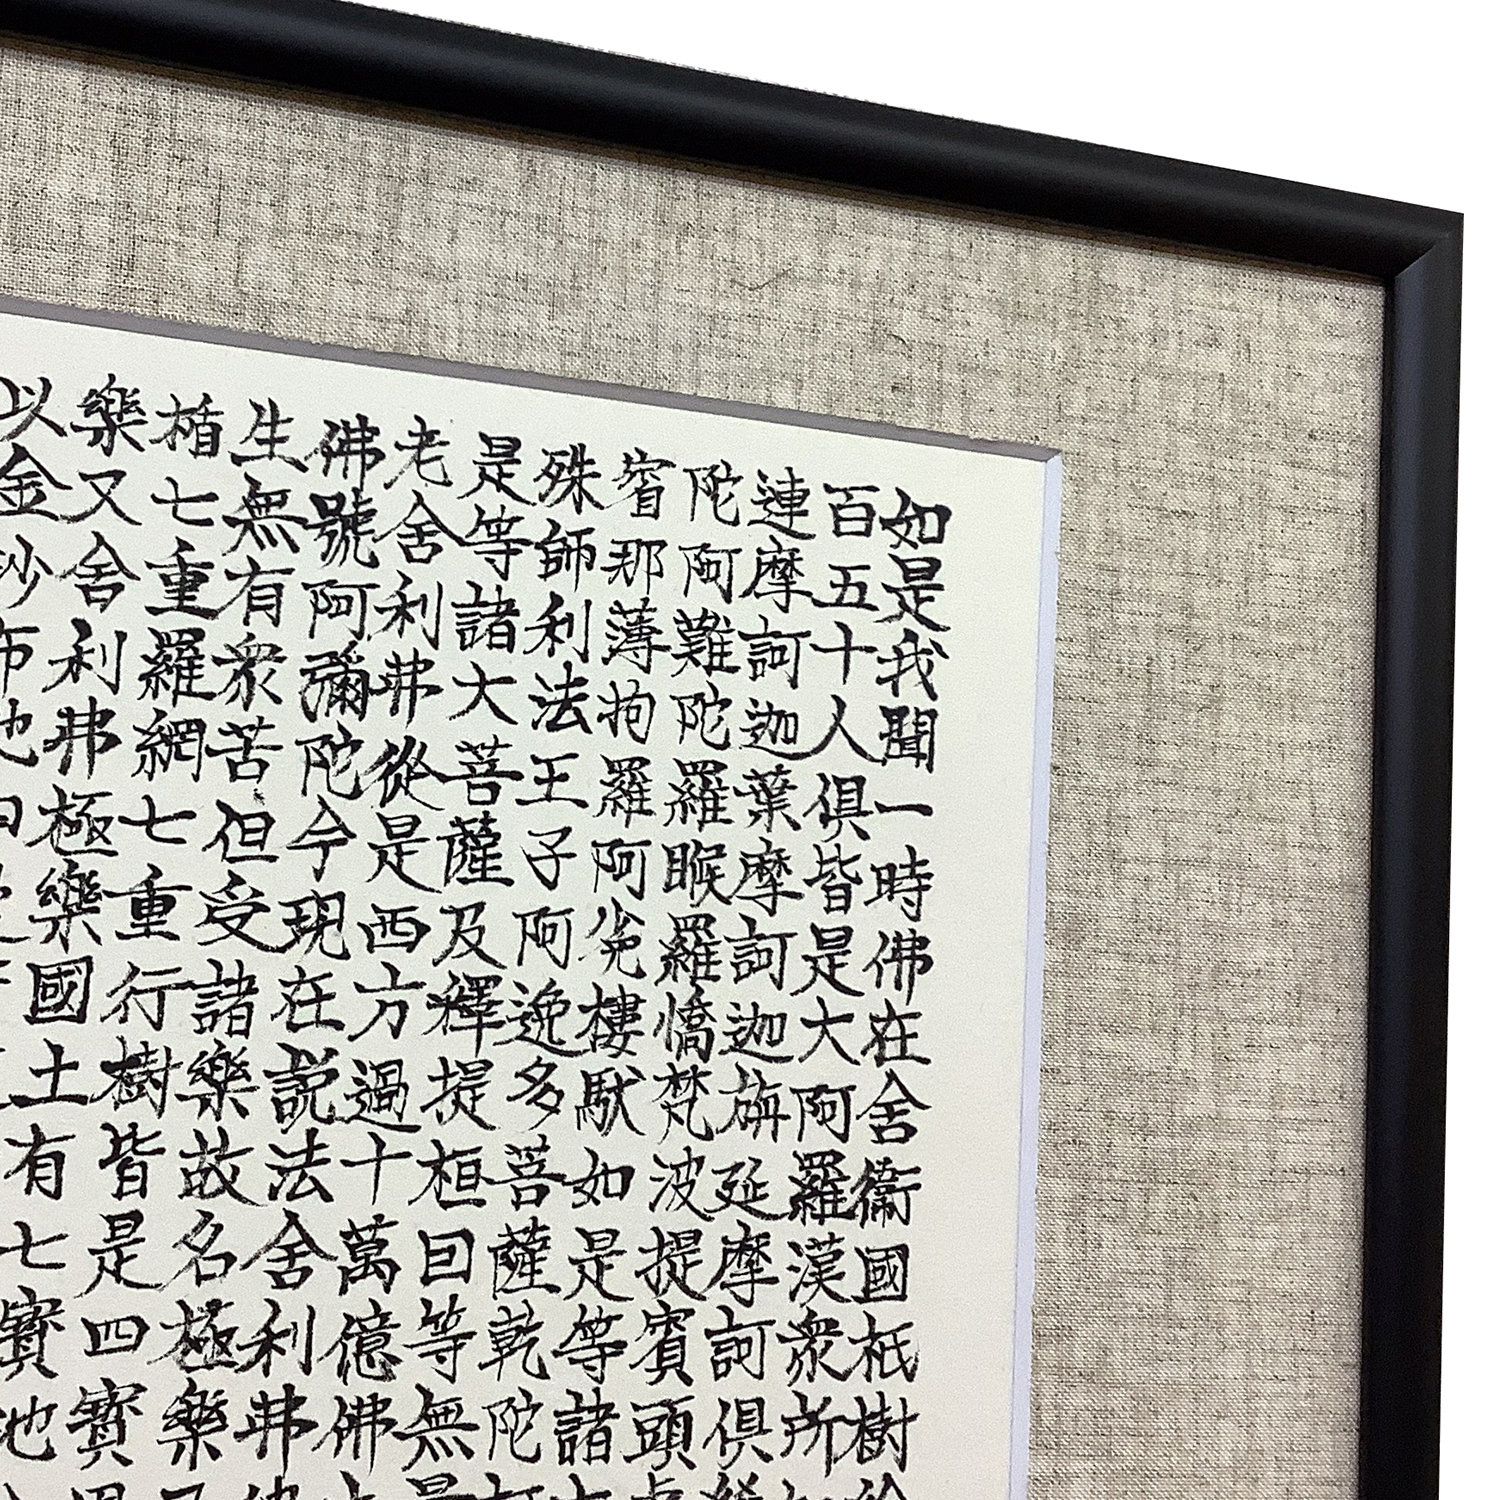 如是我聞一時佛在舍衞國祇樹給
百五十人俱皆是大阿羅漢衆所
連摩訶迦葉摩訶迦旃延摩訶俱
陀阿難陀羅睺羅憍梵波提賓頭
賓那薄拘羅阿㝹樓馱如是等諸
殊師利法王子阿逸多菩薩乾陀
是等諸大菩薩及釋提桓因等無
老舍利弗從是西方過十萬億佛
佛號阿彌陀今現在説法舍利弗
生無有衆苦但受諸樂故名極樂
楯七重羅網七重行樹皆是四寶
樂又舍利弗極樂國土有七寶池
以金沙布地